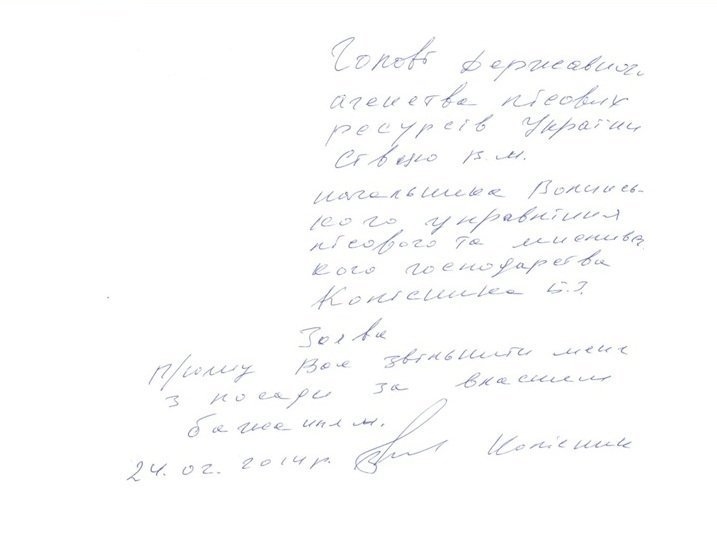 Голові державного
агенства лісових
ресурсів України
Сівцю В.М.
начальника Волинсь-
кого управління
лісового та мислив.
кого господарства
Колісника Б.І.
Заява
Прошу Вас звільнити мене
з посади за власним
бажанням.
24.02.2014р. Колісник